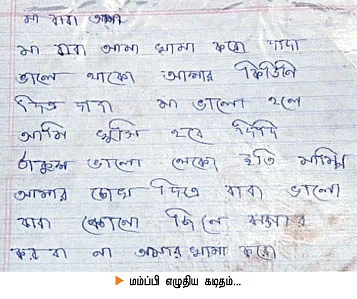 মা বাবা আমা
মা বাবা আমা ক্ষমা করো দাদা
ভালো থাকো আমার কিডনি
দিত বাবা মা ভালো হলে
আমি খুসি হবে দিদি
ঠাকুর ভালো রেখো ইতি মাম্পি
আমার চোখ দিতে বাবা ভালো
বাবা কোনো দিনে
করবা না আমার ক্ষমা করো
மம்ப்பி எழுதிய கடிதம்...